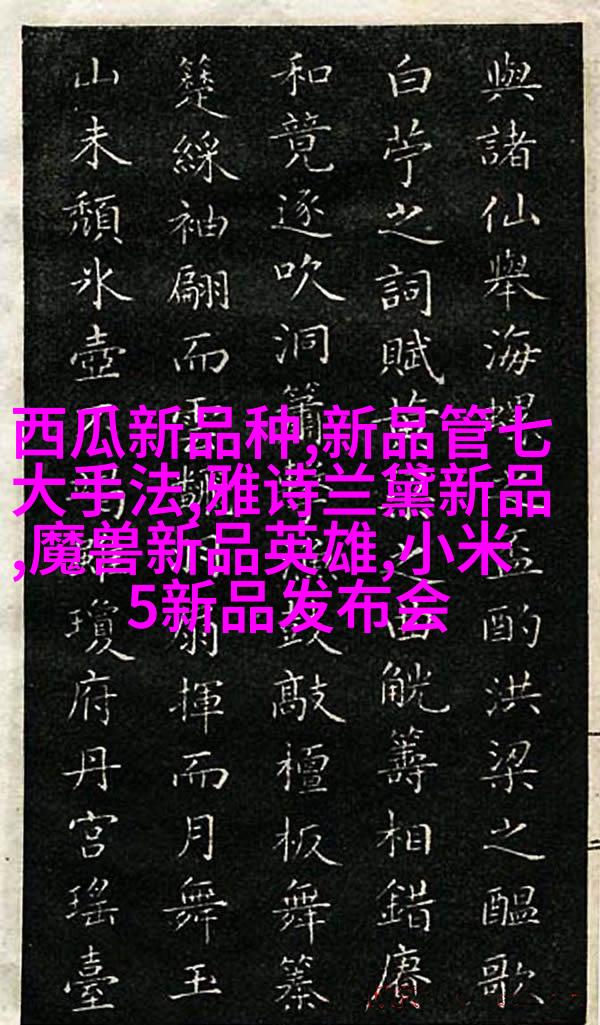 與諸仙舉海螺盃酌洪梁之醞歌
白苧之詞賦之曲觥籌相錯賡
和竟逐吹洞簫鼓敲檀板舞
綵袖翩而雲翻扇揮而月舞玉
山未頹冰壺不瓊府丹宮瑤臺
西瓜新品种,新品管七
大手法,雅诗兰黛新品
,魔兽新品英雄,小米
5新品发布会